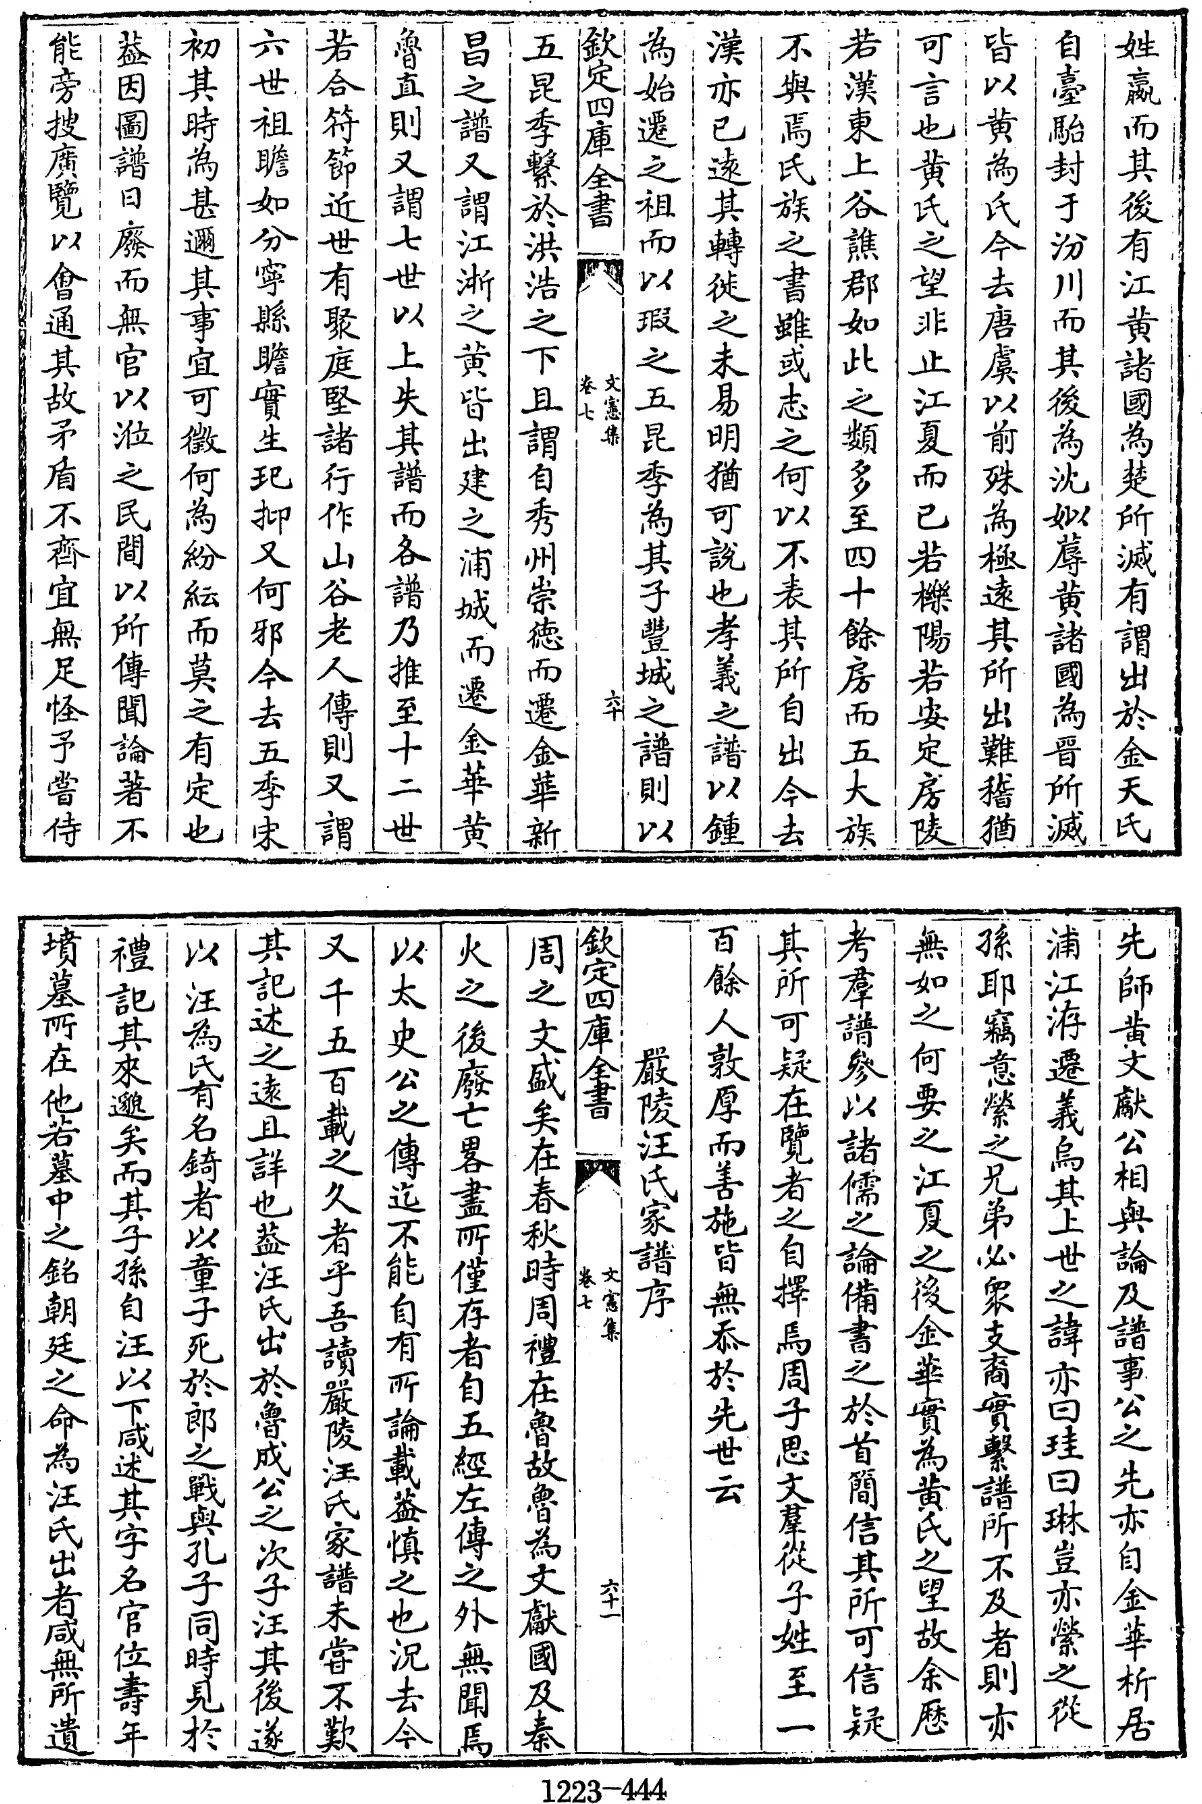 姓嬴而其後有江黄諸國為楚所滅有謂出於金天氏
自臺駘封于汾川而其後為沈姒蓐黄諸國為晋所滅
皆以黄為氏今去唐虞以前殊為極遠其所出難稽猶
可言也黄氏之望非止江夏而已若櫟陽若安定房陵
若漢東上谷譙郡如此之類多至四十餘房而五大族
不與焉氏族之書雖或志之何以不表其所自出今去
漢亦已遠其轉徙之未易明猶可說也孝義之譜以鍾
為始遷之祖而以瑕之五昆季為其子豐城之譜則以
欽定四庫全書
文憲集
卷七
六十
五昆季繫於洪浩之下且謂自秀州崇徳而遷金華新
昌之譜又謂江浙之黄皆出建之浦城而遷金華黄
魯直則又謂七世以上失其譜而各譜乃推至十二世
若合符節近世有聚庭堅諸行作山谷老人傳則又謂
六世祖瞻如分寧縣瞻實生玘抑又何邪今去五季宋
初其時為甚邇其事宜可徵何為紛紜而莫之有定也
葢因圖譜日廢而無官以涖之民間以所傳聞論著不
能旁搜廣覽以會通其故矛盾不齊宜無足怪予嘗侍
先師黄文獻公相與論及譜事公之先亦自金華析居
浦江洊遷義烏其上世之諱亦曰珪曰琳豈亦縈之從
孫耶竊意縈之兄弟必衆支裔實繫譜所不及者則亦
無如之何要之江夏之後金華實為黄氏之望故余歴
考羣譜參以諸儒之論備書之於首簡信其所可信疑
其所可疑在覽者之自擇焉周子思文羣從子姓至一
百餘人敦厚而善施皆無忝於先世云
嚴陵汪氏家譜序
欽定四庫全書
文憲集
卷七
六十一
周之文盛矣在春秋時周禮在魯故魯為文獻國及秦
火之後廢亡畧盡所僅存者自五經左傳之外無聞焉
以太史公之傳迄不能自有所論載葢慎之也況去今
又千五百載之久者乎吾讀嚴陵汪氏家譜未嘗不歎
其記述之遠且詳也葢汪氏出於魯成公之次子汪其後遂
以汪為氏有名錡者以童子死於郎之戰與孔子同時見於
禮記其來邈矣而其子孫自汪以下咸述其字名官位壽年
墳墓所在他若墓中之銘朝廷之命為汪氏出者咸無所遺
1223-444